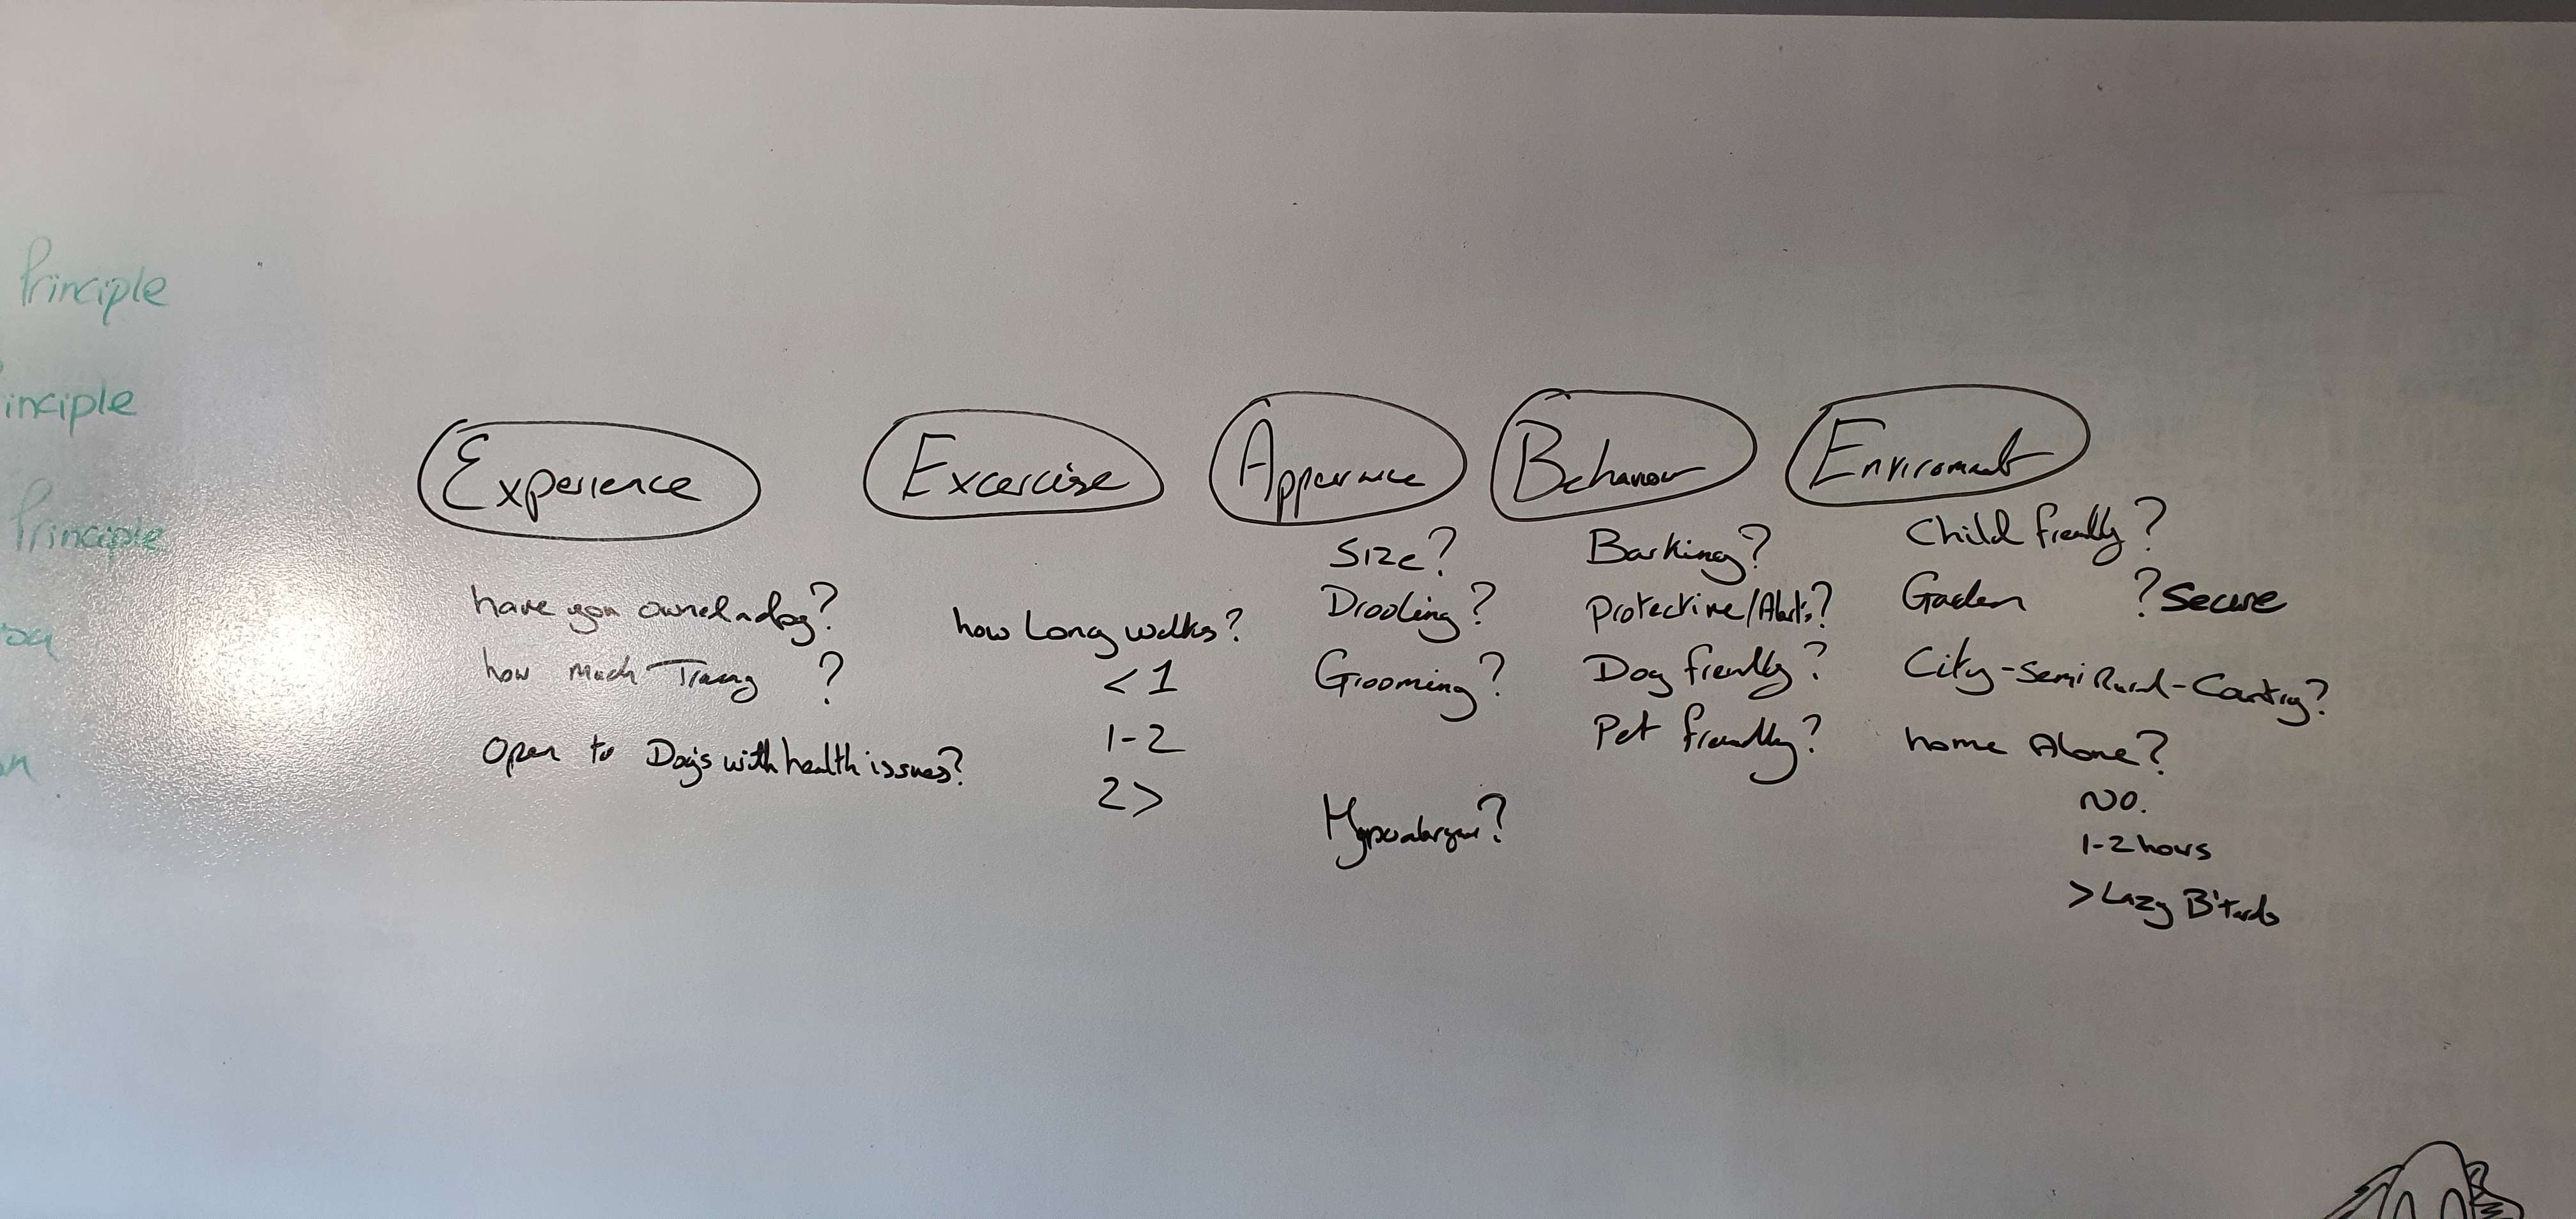 Principle
inciple
Principle
Experience
have you owned a dog?
how much Traing ?
Open to Dog's with health issues?
Excercise
how Long walks?
<1
1-2
2>
Apperance
Size?
Drooling?
Grooming?
Behaviour
Barking?
Protective/Alert?
Dog friendly?
Pet friendly?
Enviroment
Child friendly?
Garden ? Secure
City-Semi Rural-Country?
home Alone?
NO.
1-2 hours
>Lazy B'tards